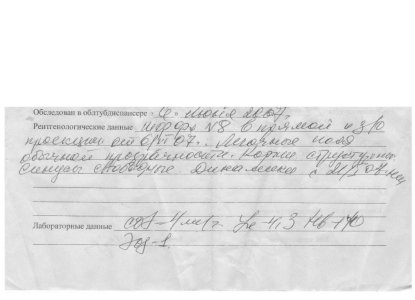 Обследован в облтубдиспансере " 6 " июня 2007г.
Рентгенологические данные
проекции от 6/VI 07. Легочные поля
обычной прозрачности. Корни структурны.
Синусы свободные Динамика с
Лабораторные данные СОЭ-4мм/г. Le-4,3 Hb-140
Эоз-1.